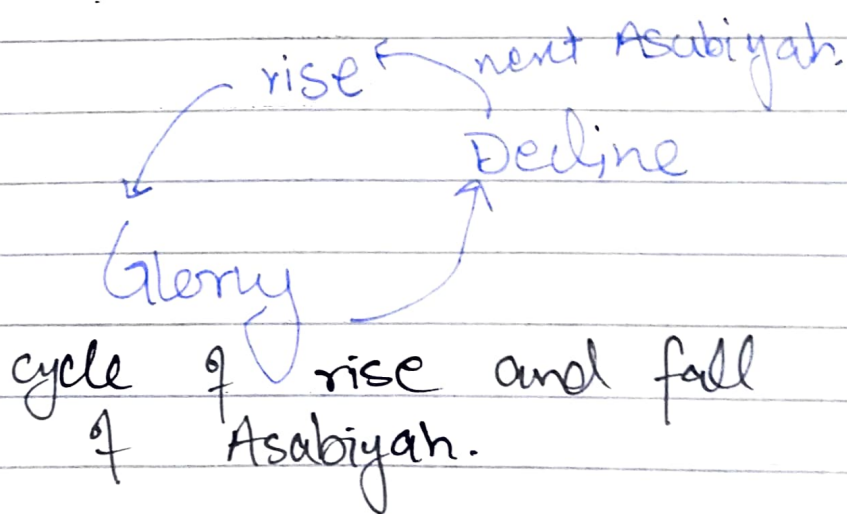 rise next Asabiyah.
Decline
Glory
cycle of rise and fall
of Asabiyah.